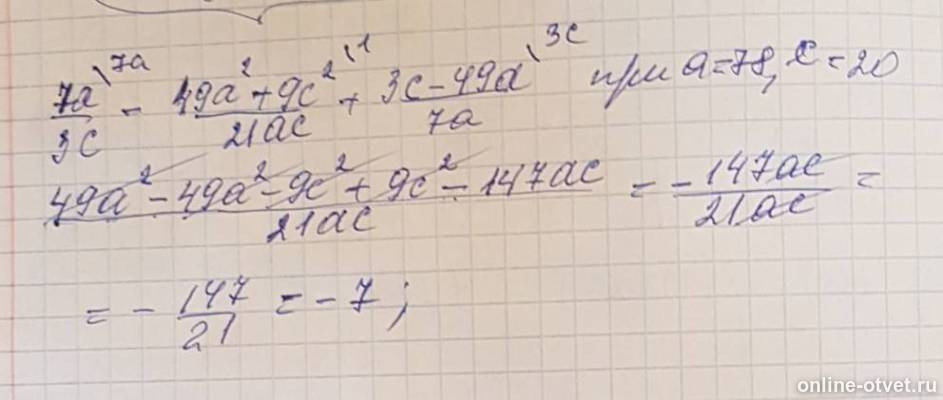 7a\7a / 3c - 49a²+9c²\1 / 21ac + 3c-49a\3c / 7a при a=78, c=20
49a²-49a²-9c²+9c²-147ac / 21ac = -147ac / 21ac =
= - 147 / 21 = -7;
online-otvet.ru